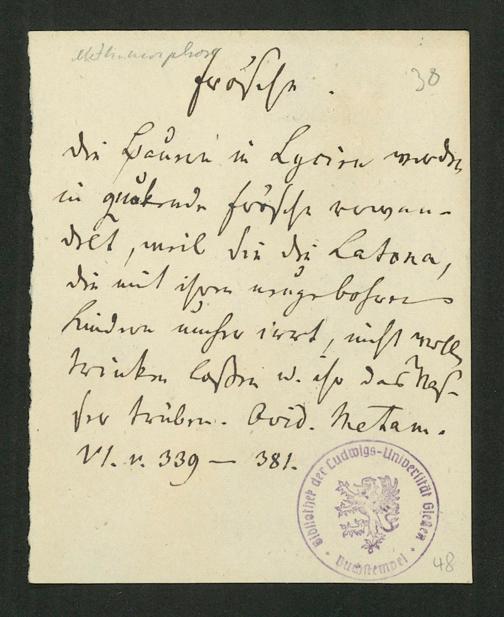 Methamorphose
38
Frösche.
die Bauern in Lycien werden
in quakende Frösche verwan-
delt, weil sie die Latona,
die mit ihren neugebohrnen
Kindern umher irrt, nicht wollen
trinken laßen u. ihr das Waß-
ser trüben. Ovid. Metam.
VI. v. 339 — 381.
Bibliothek der Ludwigs-Universität Gießen
Buchstempel
48